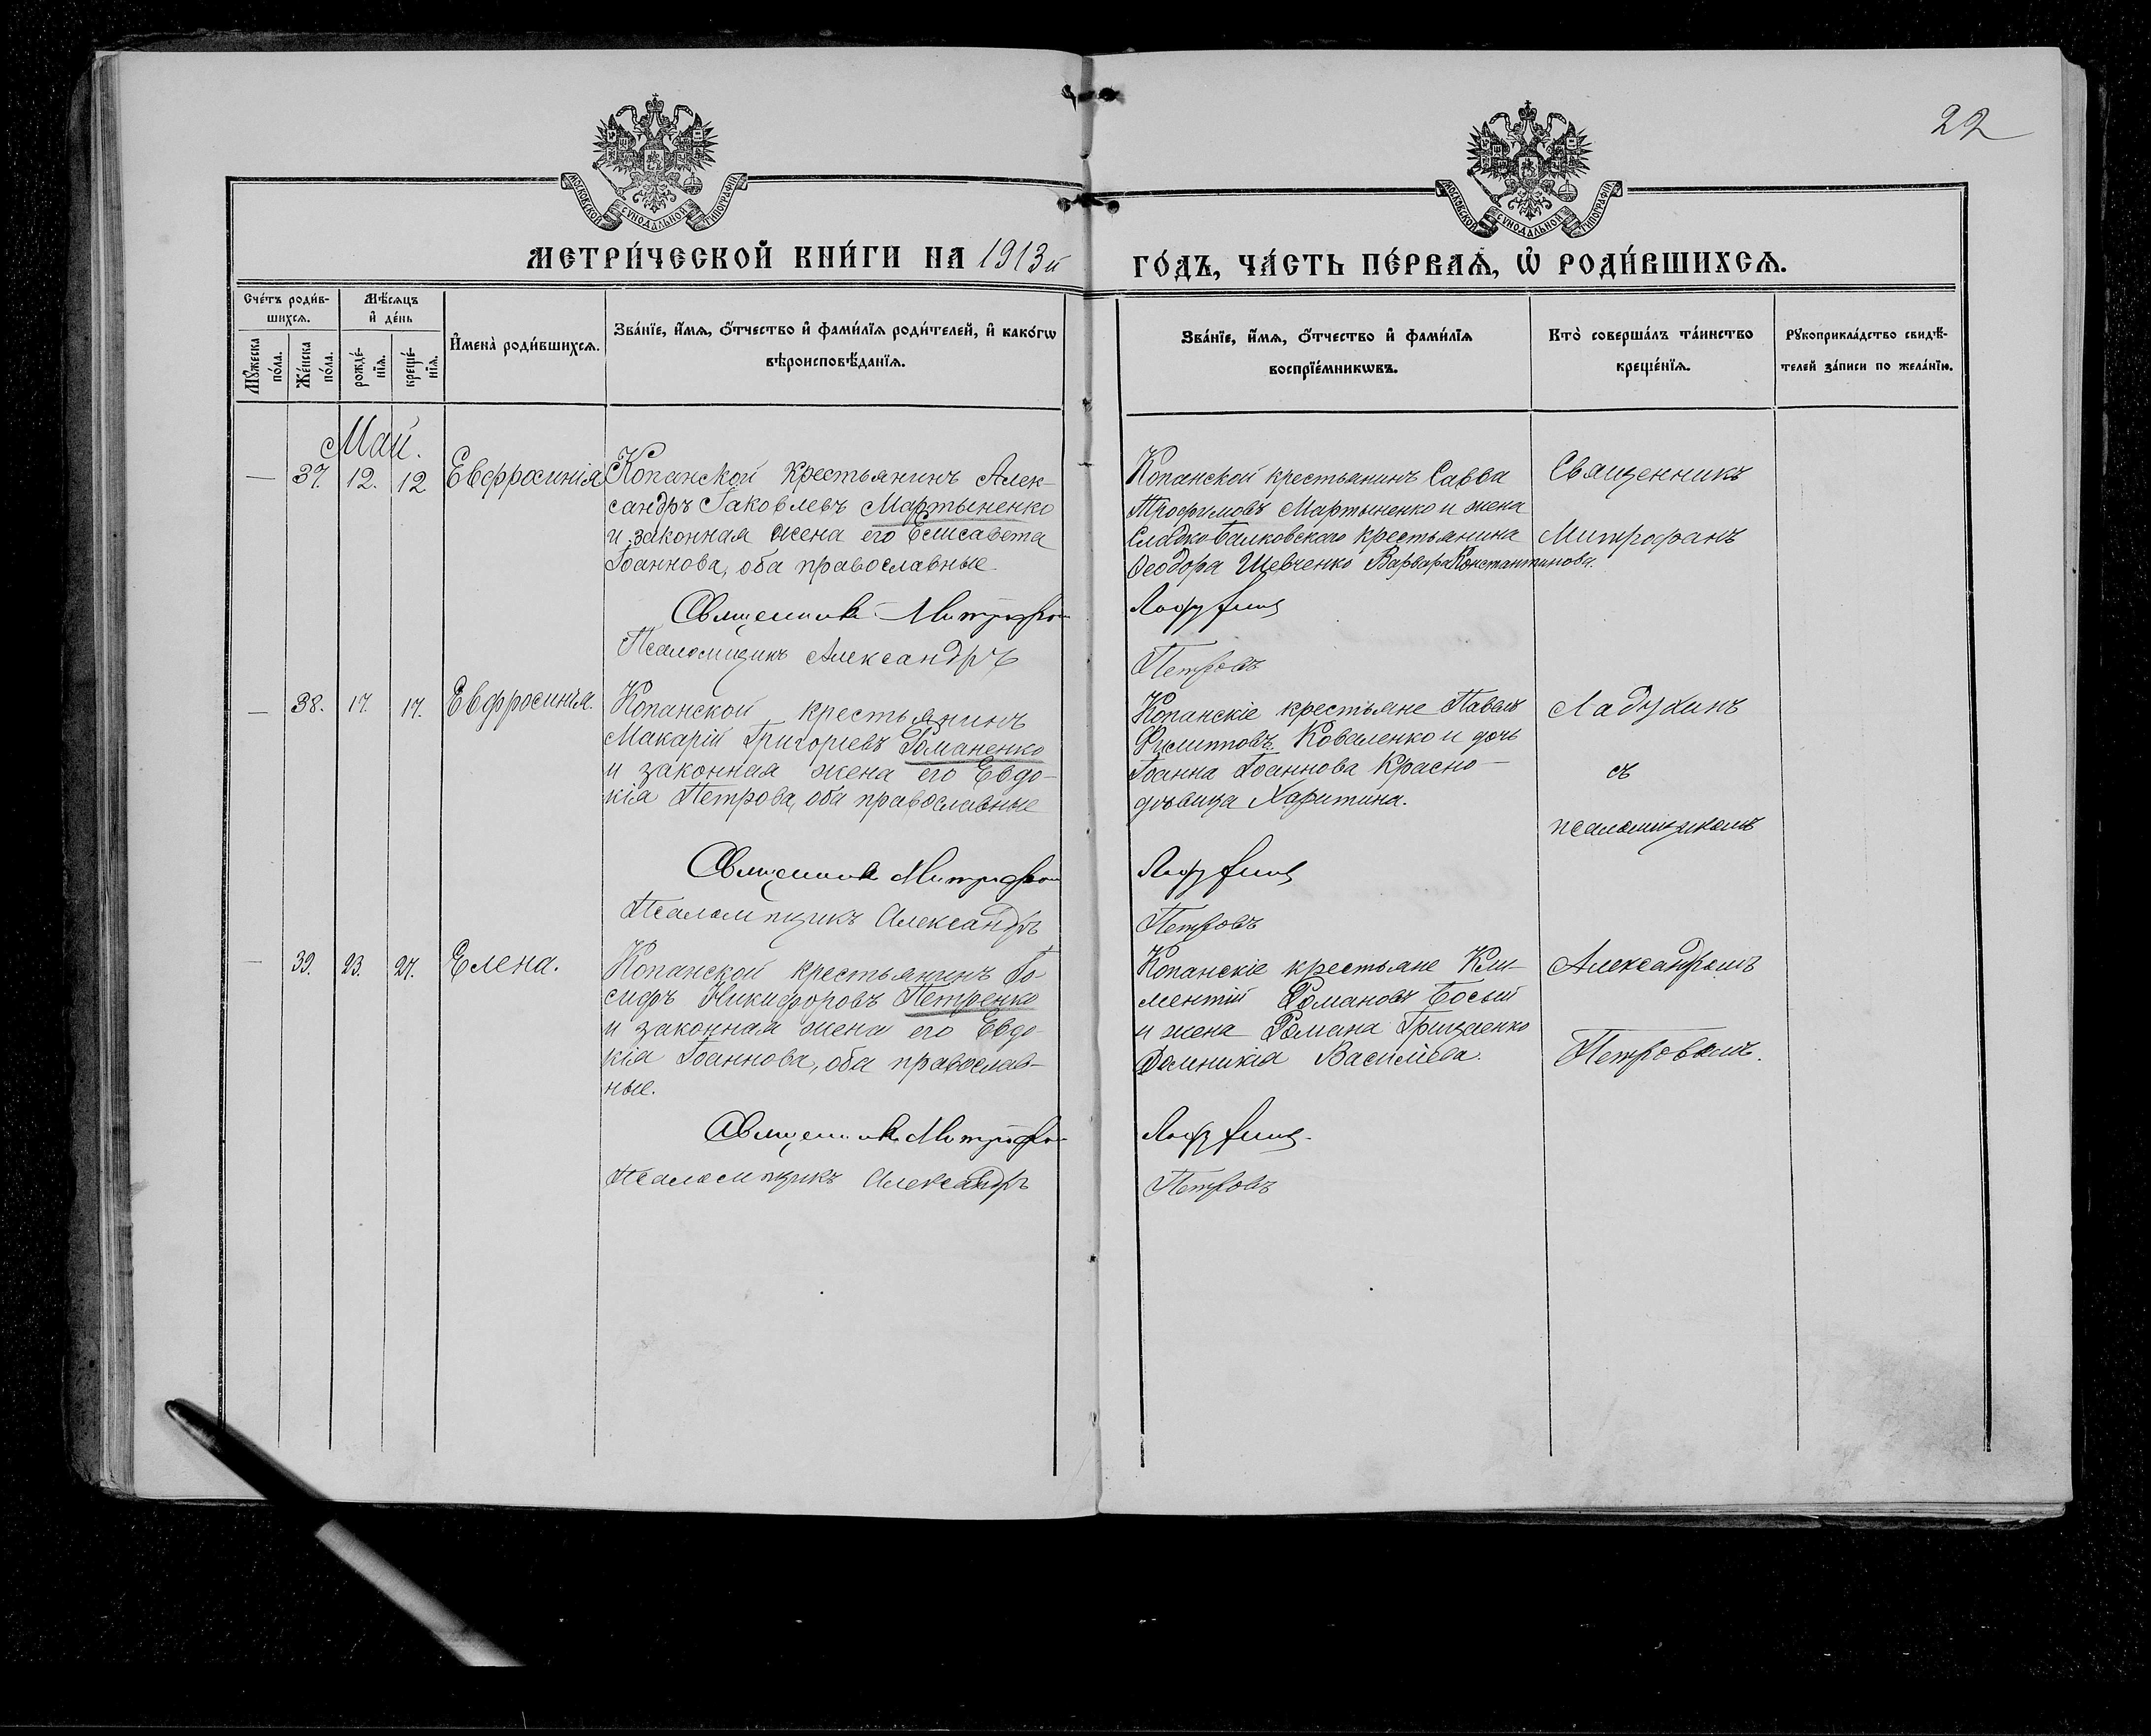 22
МОСКОВСКОЙ СУНОДАЛЬНОЙ ТИПОГРАФІИ
МОСКОВСКОЙ СУНОДАЛЬНОЙ ТИПОГРАФІИ
МЕТРИ́ЧЕСКОЙ КНИ́ГИ НА 1913й ГО́ДЪ, ЧА́СТЬ ПЕ́РВАѦ, Ѡ РОДИ́ВШИХСѦ.
Сче́тъ роди́в-
шихсѧ.
Мѣ́сѧцъ
и҆ де́нь
Мꙋ́жеска
по́ла.
Же́нска
по́ла.
рожде́-
нїѧ.
креще́-
нїѧ.
И҆мена̀ роди́вшихсѧ.
Зва́нїе, и҆́мѧ, ѻ҆́тчество и҆ фами́лїѧ роди́телей, и҆ како́гѡ
вѣроисповѣ́данїѧ.
Зва́нїе, и҆́мѧ, ѻ҆́тчество и҆ фами́лїѧ
воспрїе́мникѡвъ.
Кто̀ соверша́лъ та́инство
креще́нїѧ.
Рꙋкоприкла́дство свидѣ́-
телей за́писи по жела́нїю.
Май.
— 37. 12. 12 Евфросинія
Копанской крестьянинъ Алек-
сандръ Іаковлевъ Мартыненко
и законная жена его Елисавета
Іоаннова, оба православные
Священникъ Митрофан
Псаломщикъ Александръ
Копанской крестьянинъ Савва
Трофимовъ Мартыненко и жена
Сладко-Балковскаго крестьянина
Ѳеодора Шевченко Варвара Константинова.
Ладухинъ
Петровъ
Священникъ
Митрофанъ
— 38. 17. 17. Евфросинія.
Копанской крестьянинъ
Макарій Григоріевъ Романенко
и законная жена его Евдо-
кія Петрова, оба православные
Священникъ Митрофан
Псаломщикъ Александръ
Копанскіе крестьяне Павелъ
Филипповъ Коваленко и дочь
Іоанна Іоаннова Красно-
дѣвица Харитина.
Ладухинъ
Петровъ
Ладухинъ
съ
псаломщикомъ
— 39. 23. 27. Елена.
Копанской крестьянинъ Іо-
сифъ Никифоровъ Петренко
и законная жена его Евдо-
кія Іоаннова, оба православ-
ные.
Священникъ Митрофан
Псаломщикъ Александръ
Копанскіе крестьяне Кли-
ментій Романовъ Босый
и жена Романа Грицаенко
Домникія Василіева.
Ладухинъ.
Петровъ
Александромъ
Петровымъ.